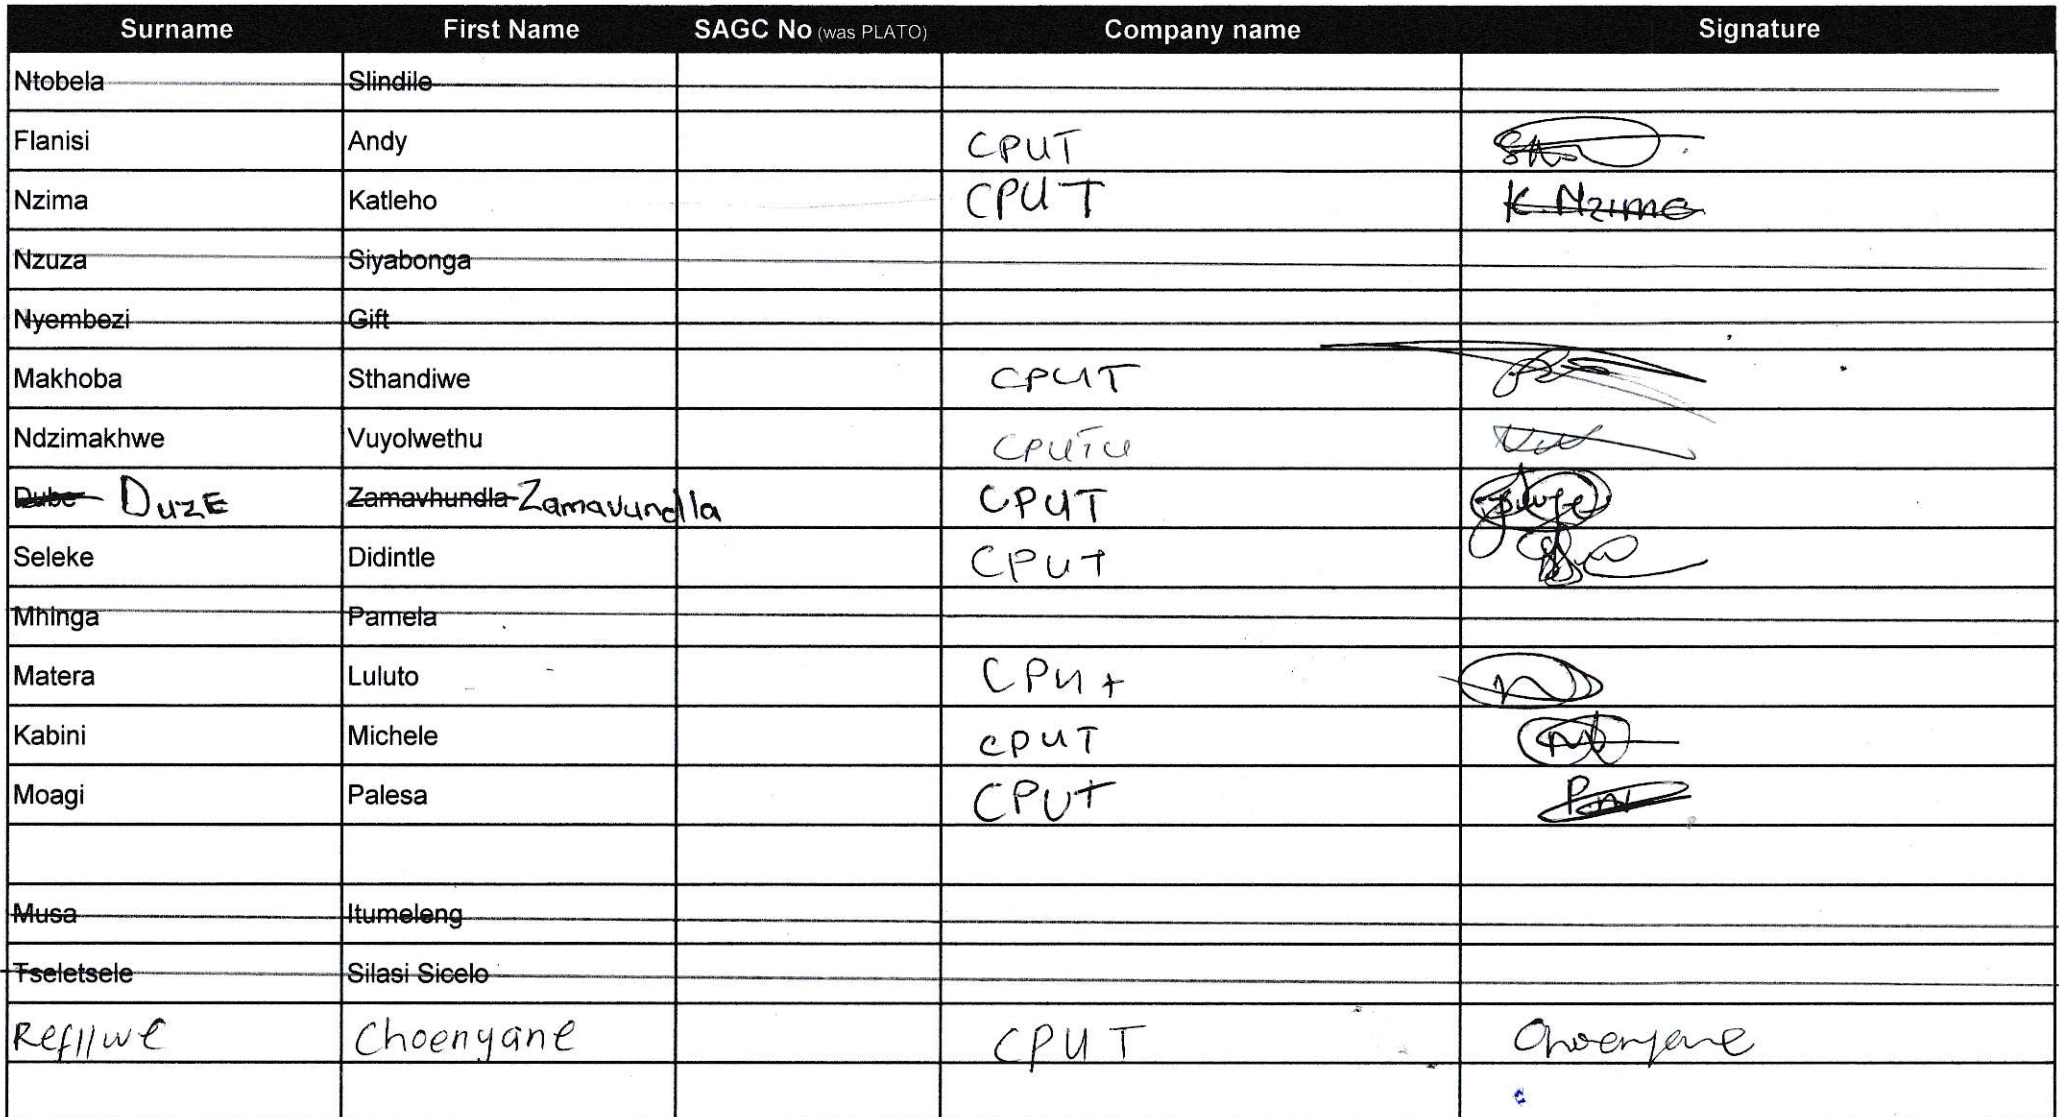 Surname First Name SAGC No (was PLATO) Company name Signature
Ntobela Slindile
Flanisi Andy CPUT
Nzima Katleho CPUT K Nzima
Nzuza Siyabonga
Nyembezi Gift
Makhoba Sthandiwe CPUT
Ndzimakhwe Vuyolwethu CPUTU
Dube DUZE Zamavhundla Zamavundla CPUT
Seleke Didintle CPUT
Mhinga Pamela
Matera Luluto CPUt
Kabini Michele CPUT
Moagi Palesa CPUT
Musa Itumeleng
Tseletsele Silasi Sicelo
Refilwe Choenyane CPUT Choenyane